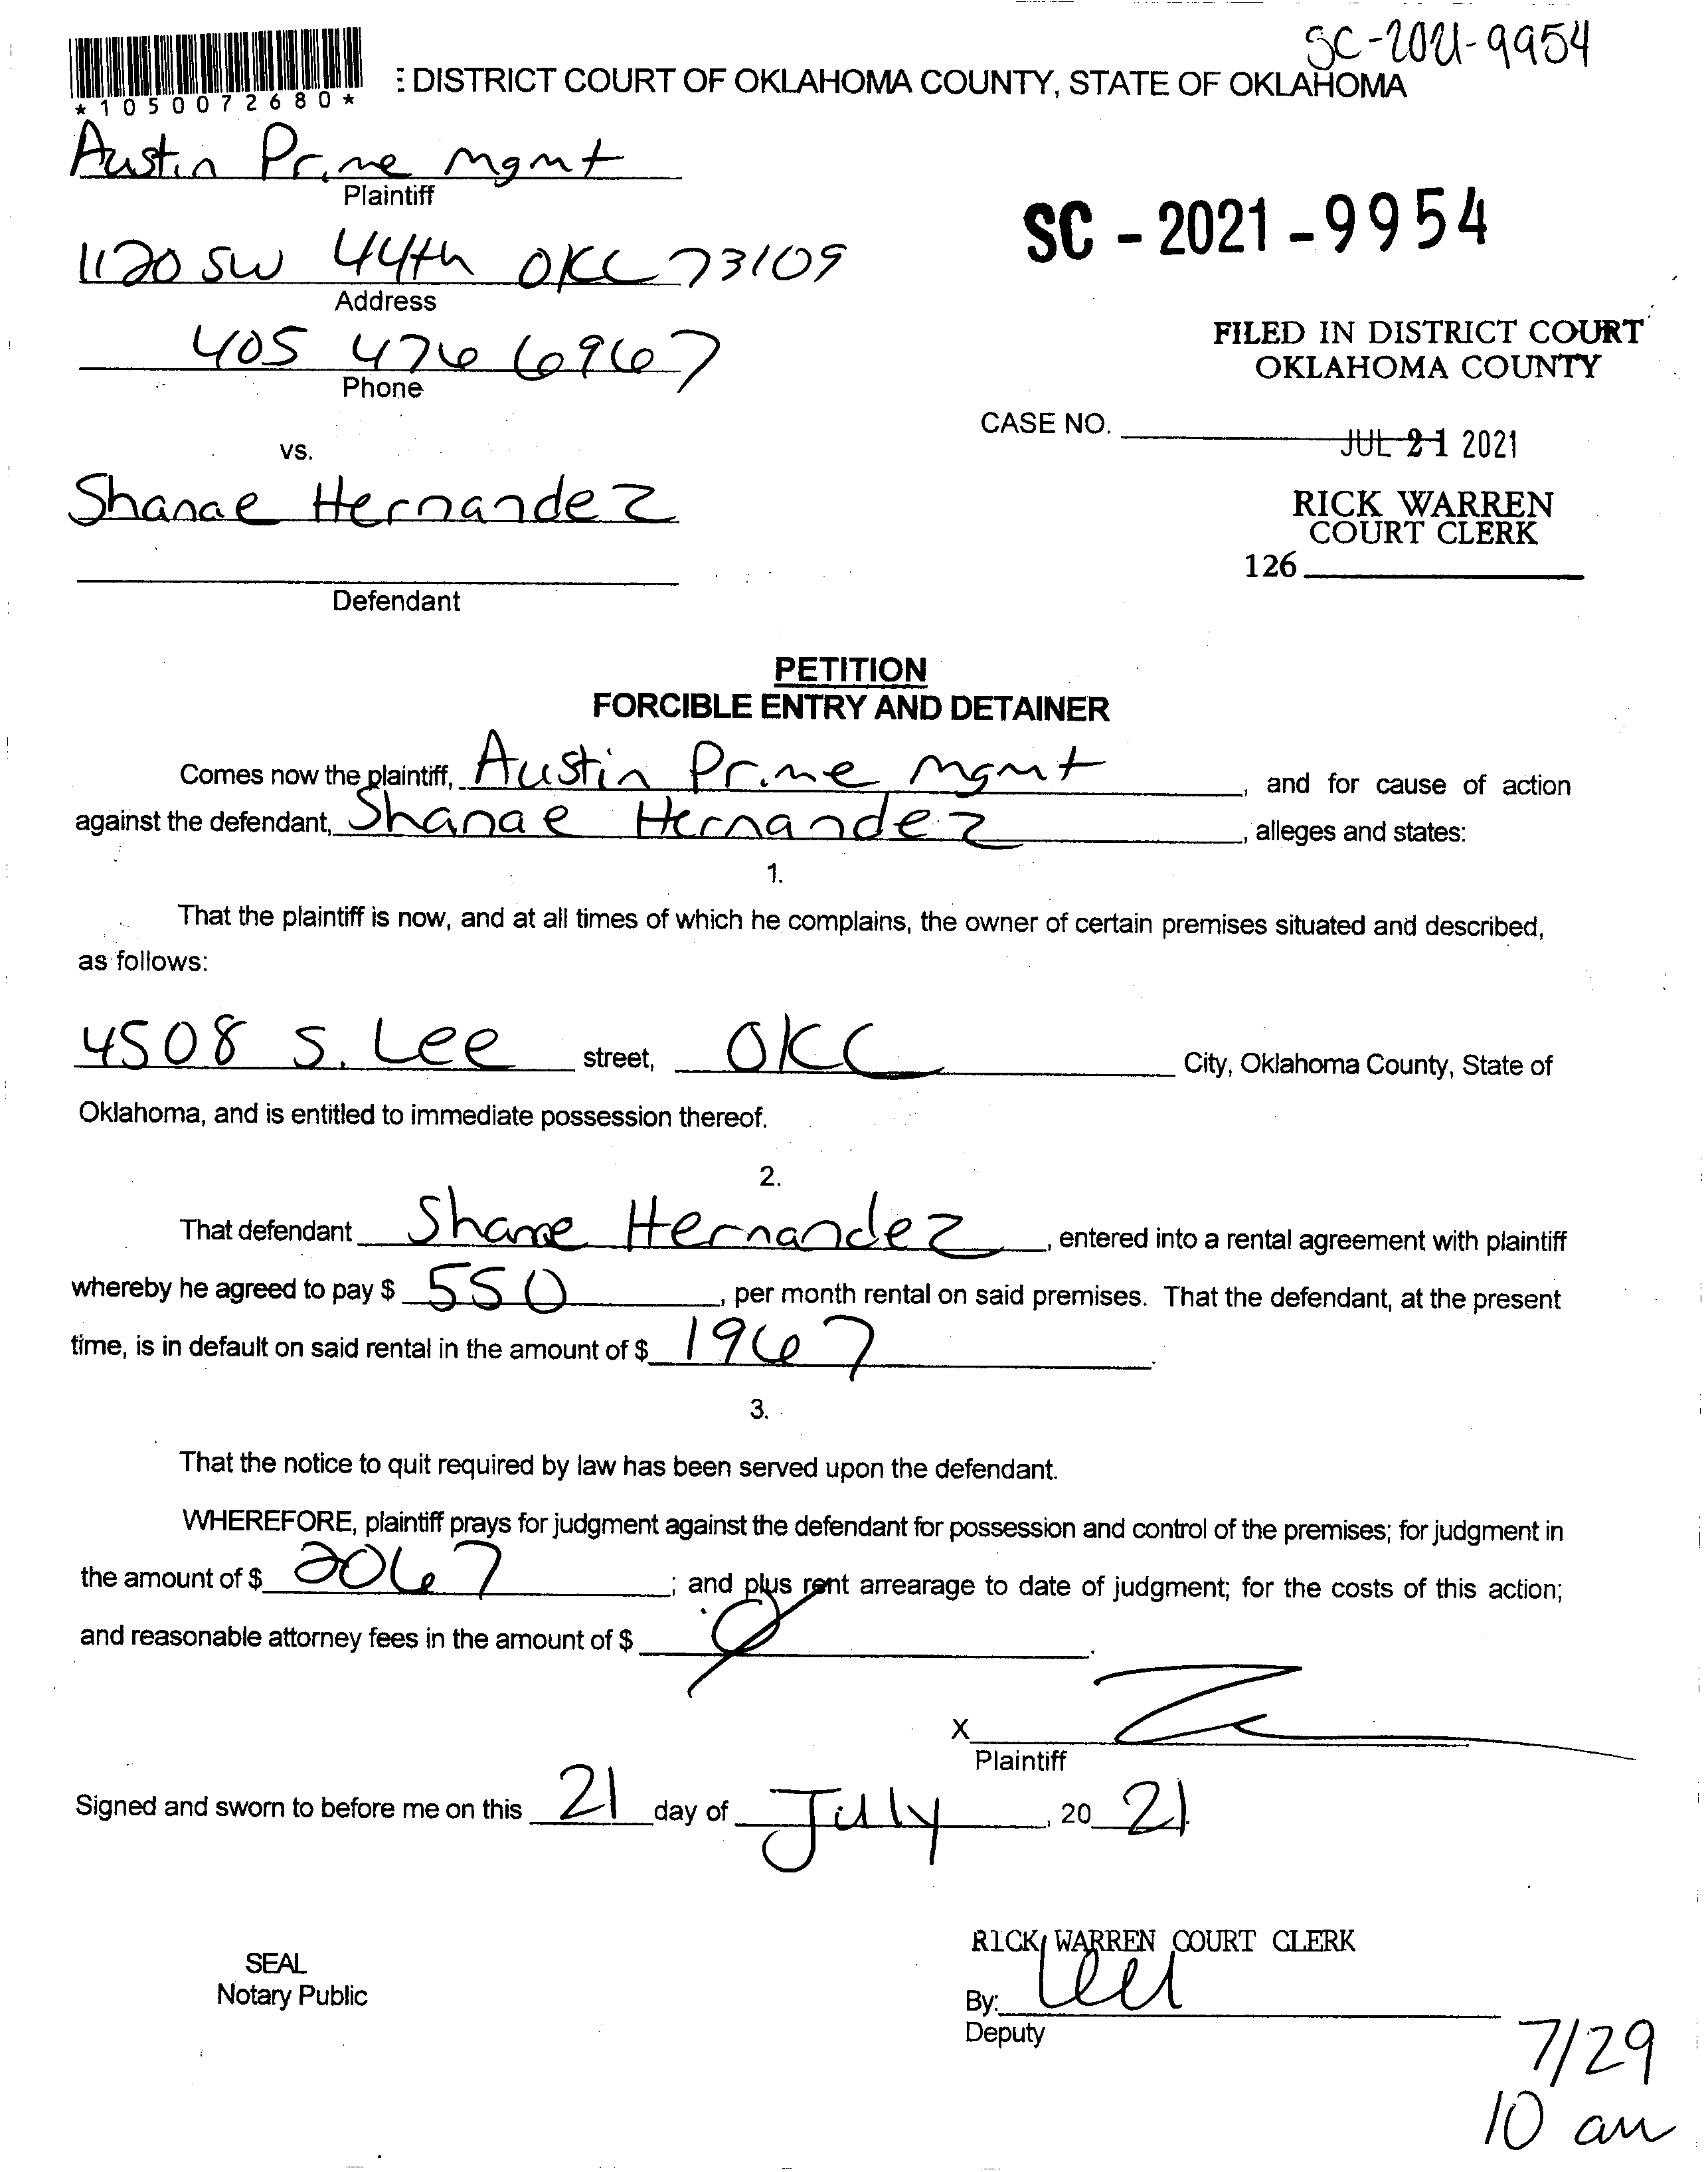 SC-2021-9954
*1050072680*
E DISTRICT COURT OF OKLAHOMA COUNTY, STATE OF OKLAHOMA
Austin Prime Mgmt
Plaintiff
SC-2021-9954
1120 SW 44th OKC 73109
Address
FILED IN DISTRICT COURT
OKLAHOMA COUNTY
405 476 6967
Phone
CASE NO. JUL 21 2021
vs.
Shanae Hernandez
RICK WARREN
COURT CLERK
126
Defendant
PETITION
FORCIBLE ENTRY AND DETAINER
Comes now the plaintiff, Austin Prime Mgmt, and for cause of action
against the defendant, Shanae Hernandez, alleges and states:
1.
That the plaintiff is now, and at all times of which he complains, the owner of certain premises situated and described,
as follows:
4508 S. Lee street, OKC City, Oklahoma County, State of
Oklahoma, and is entitled to immediate possession thereof.
2.
That defendant Shanae Hernandez, entered into a rental agreement with plaintiff
whereby he agreed to pay $ 550, per month rental on said premises. That the defendant, at the present
time, is in default on said rental in the amount of $ 1967.
3.
That the notice to quit required by law has been served upon the defendant.
WHEREFORE, plaintiff prays for judgment against the defendant for possession and control of the premises; for judgment in
the amount of $ 2067; and plus rent arrearage to date of judgment; for the costs of this action;
and reasonable attorney fees in the amount of $ Ø.
X
Plaintiff
Signed and sworn to before me on this 21 day of July, 20 21.
RICK WARREN COURT CLERK
SEAL
Notary Public
By:
Deputy
7/29
10 am